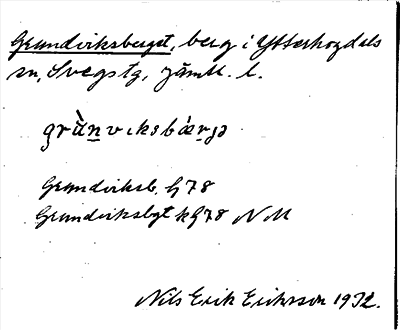 Grundviksberget, berg i Ytterhogdals
sn, Svegs tg, Jämtl. l.
grùn̠viksbǽr̠jə
Grundviksb. G 78
Grundviksbgt kG78 NM
Nils Erik Eriksson 1932.